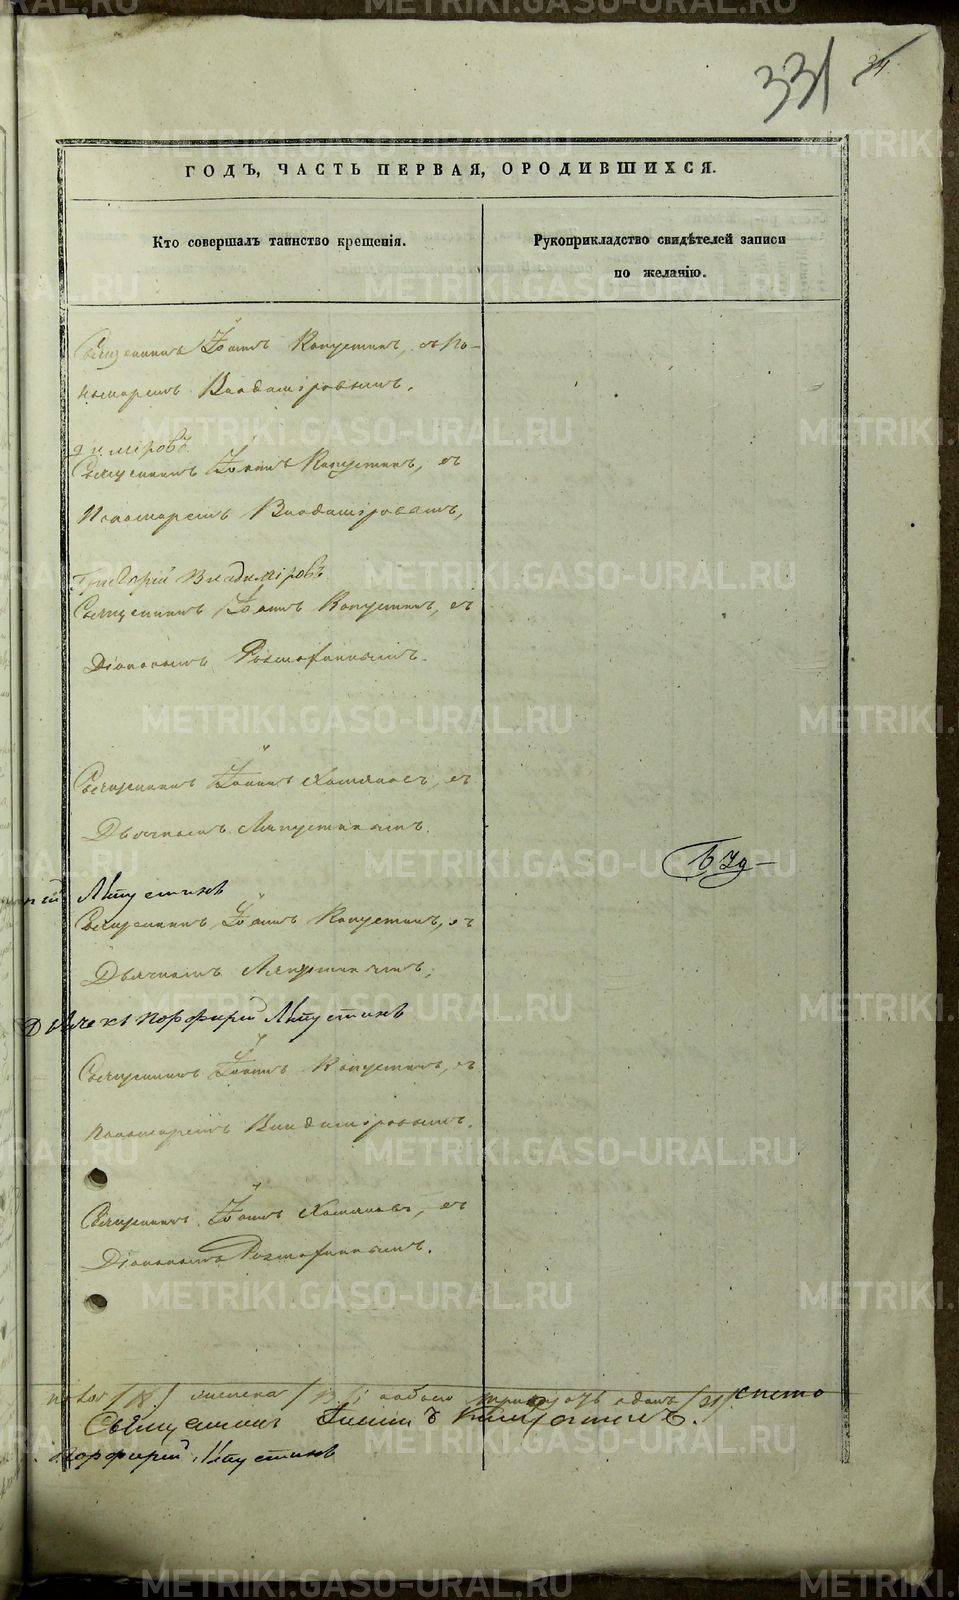 331
34
ГОДЪ, ЧАСТЬ ПЕРВАЯ, ОРОДИВШИХСЯ.
Кто совершалъ таинство крещенія.
Рукоприкладство свидѣтелей записи
по желанію.
Священникъ Іоаннъ Капустинъ, съ По-
номаремъ Владиміровымъ.
диміровъ
Священникъ Іоаннъ Капустинъ, съ
Пономаремъ Владиміровымъ,
Григорій Владиміровъ
Священникъ Іоаннъ Капустинъ, съ
Діакономъ
Священникъ Іоаннъ Хомяковъ, съ
Дьячкомъ Ляпустинымъ.
Ляпустинъ
Священникъ Іоаннъ Капустинъ, съ
Дьячкомъ Ляпустинымъ,
Дьячекъ Порфирій Ляпустинъ
Священникъ Іоаннъ Капустинъ, съ
Пономаремъ Владиміровымъ.
Священникъ Іоаннъ Хомяковъ, съ
Діакономъ
/18/ женска /13/ обоего тридцать одинъ /31/
Священникъ Іоаннъ Капустинъ.
Порфирій Ляпустинъ
METRIKI.GASO-URAL.RU